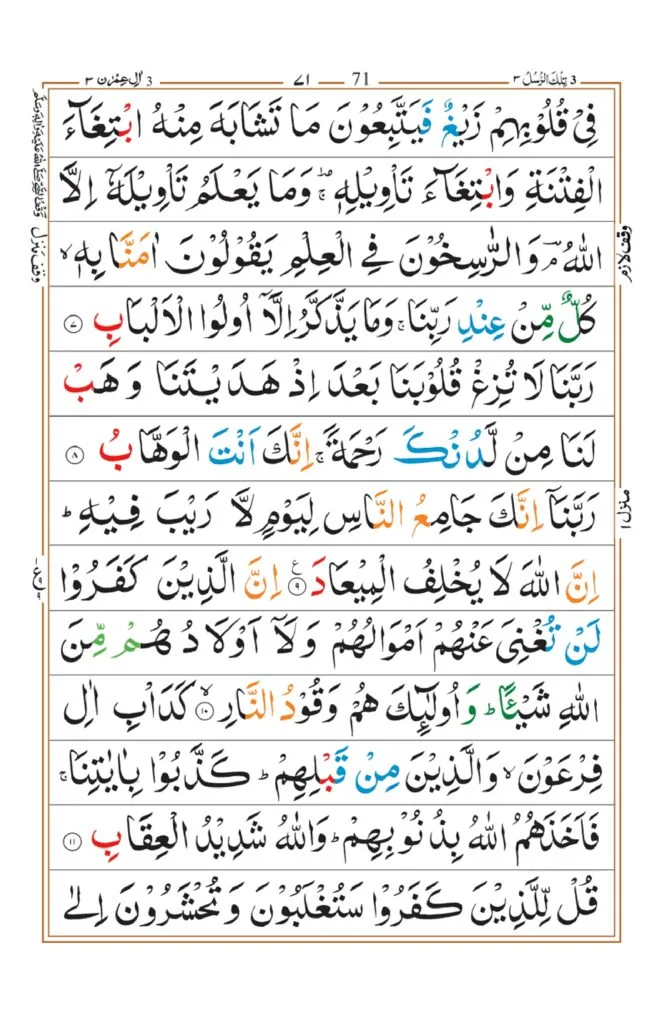 3 تِلْكَ الرُّسُلُ ٣
71
٧١
3 اٰلِ عِمْرٰن ٣
فِیْ قُلُوْبِهِمْ زَیْغٌ فَیَتَّبِعُوْنَ مَا تَشَابَهَ مِنْهُ ابْتِغَآءَ
الْفِتْنَةِ وَابْتِغَآءَ تَاْوِیْلِهٖ ۚؔ وَمَا یَعْلَمُ تَاْوِیْلَهٗۤ اِلَّا
اللّٰهُ ۘؔ وَالرّٰسِخُوْنَ فِی الْعِلْمِ یَقُوْلُوْنَ اٰمَنَّا بِهٖ ۙ
كُلٌّ مِّنْ عِنْدِ رَبِّنَا ۚ وَمَا یَذَّكَّرُ اِلَّاۤ اُولُوا الْاَلْبَابِ ۝٧
رَبَّنَا لَا تُزِغْ قُلُوْبَنَا بَعْدَ اِذْ هَدَیْتَنَا وَهَبْ
لَنَا مِنْ لَّدُنْكَ رَحْمَةً ۚ اِنَّكَ اَنْتَ الْوَهَّابُ ۝٨
رَبَّنَاۤ اِنَّكَ جَامِعُ النَّاسِ لِیَوْمٍ لَّا رَیْبَ فِیْهِ ؕ
اِنَّ اللّٰهَ لَا یُخْلِفُ الْمِیْعَادَ ۝٩ ع اِنَّ الَّذِیْنَ كَفَرُوْا
لَنْ تُغْنِیَ عَنْهُمْ اَمْوَالُهُمْ وَلَاۤ اَوْلَادُهُمْ مِّنَ
اللّٰهِ شَیْـًٔا ؕ وَاُولٰٓىِٕكَ هُمْ وَقُوْدُ النَّارِ ۝١٠ ۙ كَدَاْبِ اٰلِ
فِرْعَوْنَ ۙ وَالَّذِیْنَ مِنْ قَبْلِهِمْ ؕ كَذَّبُوْا بِاٰیٰتِنَا ۚ
فَاَخَذَهُمُ اللّٰهُ بِذُنُوْبِهِمْ ؕ وَاللّٰهُ شَدِیْدُ الْعِقَابِ ۝١١
قُلْ لِّلَّذِیْنَ كَفَرُوْا سَتُغْلَبُوْنَ وَتُحْشَرُوْنَ اِلٰی
وقف لازم
منزل ١
وقف منزل